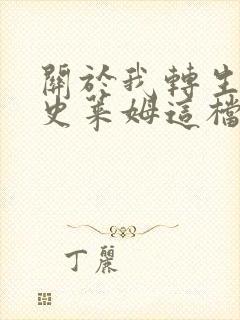 關於我轉生
史萊姆這檔
丁麗